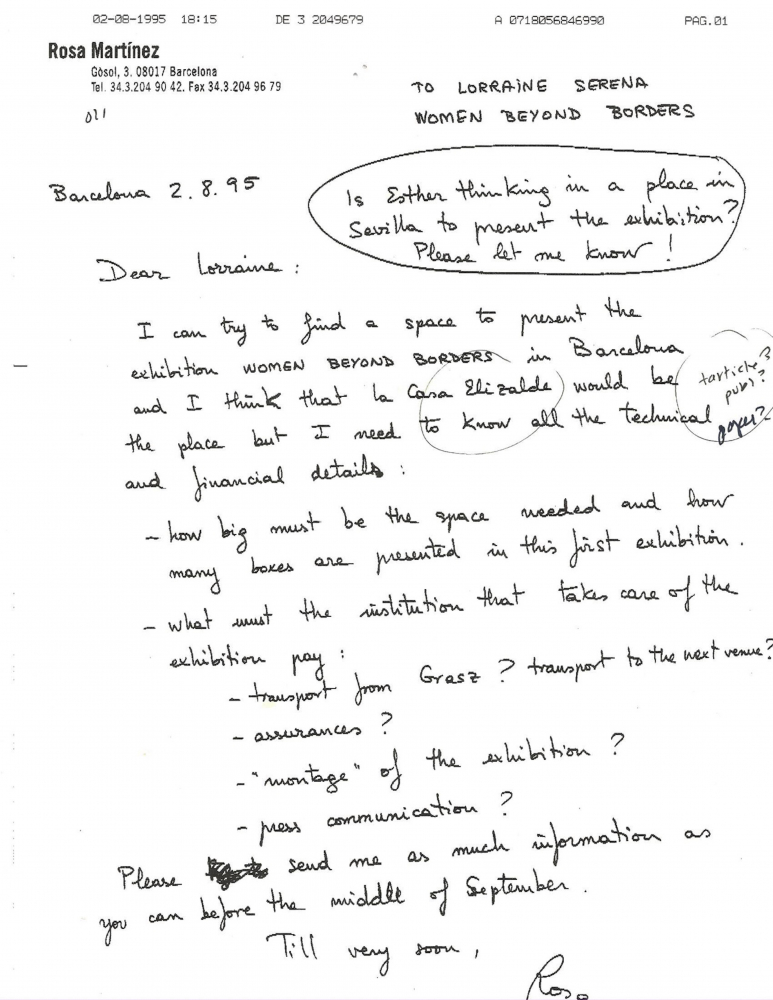 02-08-1995 18:15 DE 3 2049679 A 0718056846990 PAG.01
Rosa Martínez
Gòsol, 3. 08017 Barcelona
Tel. 34.3.204 90 42. Fax 34.3.204 96 79
TO LORRAINE SERENA
WOMEN BEYOND BORDERS
Barcelona 2.8.95
Is Esther thinking in a place in
Sevilla to present the exhibition?
Please let me know!
Dear Lorraine:
I can try to find a space to present the
exhibition WOMEN BEYOND BORDERS in Barcelona
and I think that la Casa Elizalde would be
the place but I need to know all the technical
and financial details:
- how big must be the space needed and how
many boxes are presented in this first exhibition.
- what must the institution that takes care of the
exhibition pay:
- transport from Grasz? transport to the next venue?
- assurances?
- "montage" of the exhibition?
- press communication?
Please send me as much information as
you can before the middle of September.
Till very soon,
Rosa